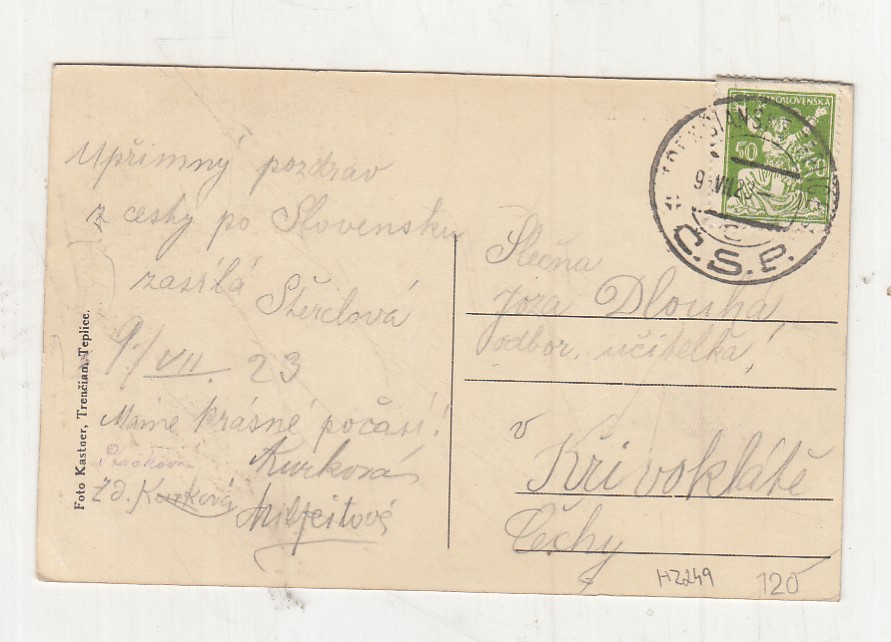 Upřimný pozdrav
z cesty po Slovensku
zasílá
Štěrclová
9./VII. 23
Máme krásné počasí!
Kurková
Zd. Kurková
Foto Kastner, Trenčian. Teplice.
ČESKOSLOVENSKA
50
9 VII 23
Č.S.P.
Slečna
Józa Dlouhá,
odbor. učitelka,
v
Křivoklátě
Čechy
HZ249
120